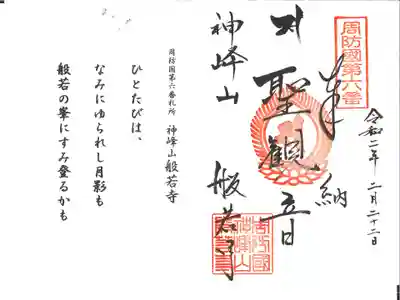 周防國第六番
奉納
令和二年二月二十二日
聖観音
神峰山
般若寺
周防國
神峰山
般若寺
周防国第六番札所 神峰山般若寺
ひとたびは、
なみにゆられし月影も
般若の峯にすみ登るかも